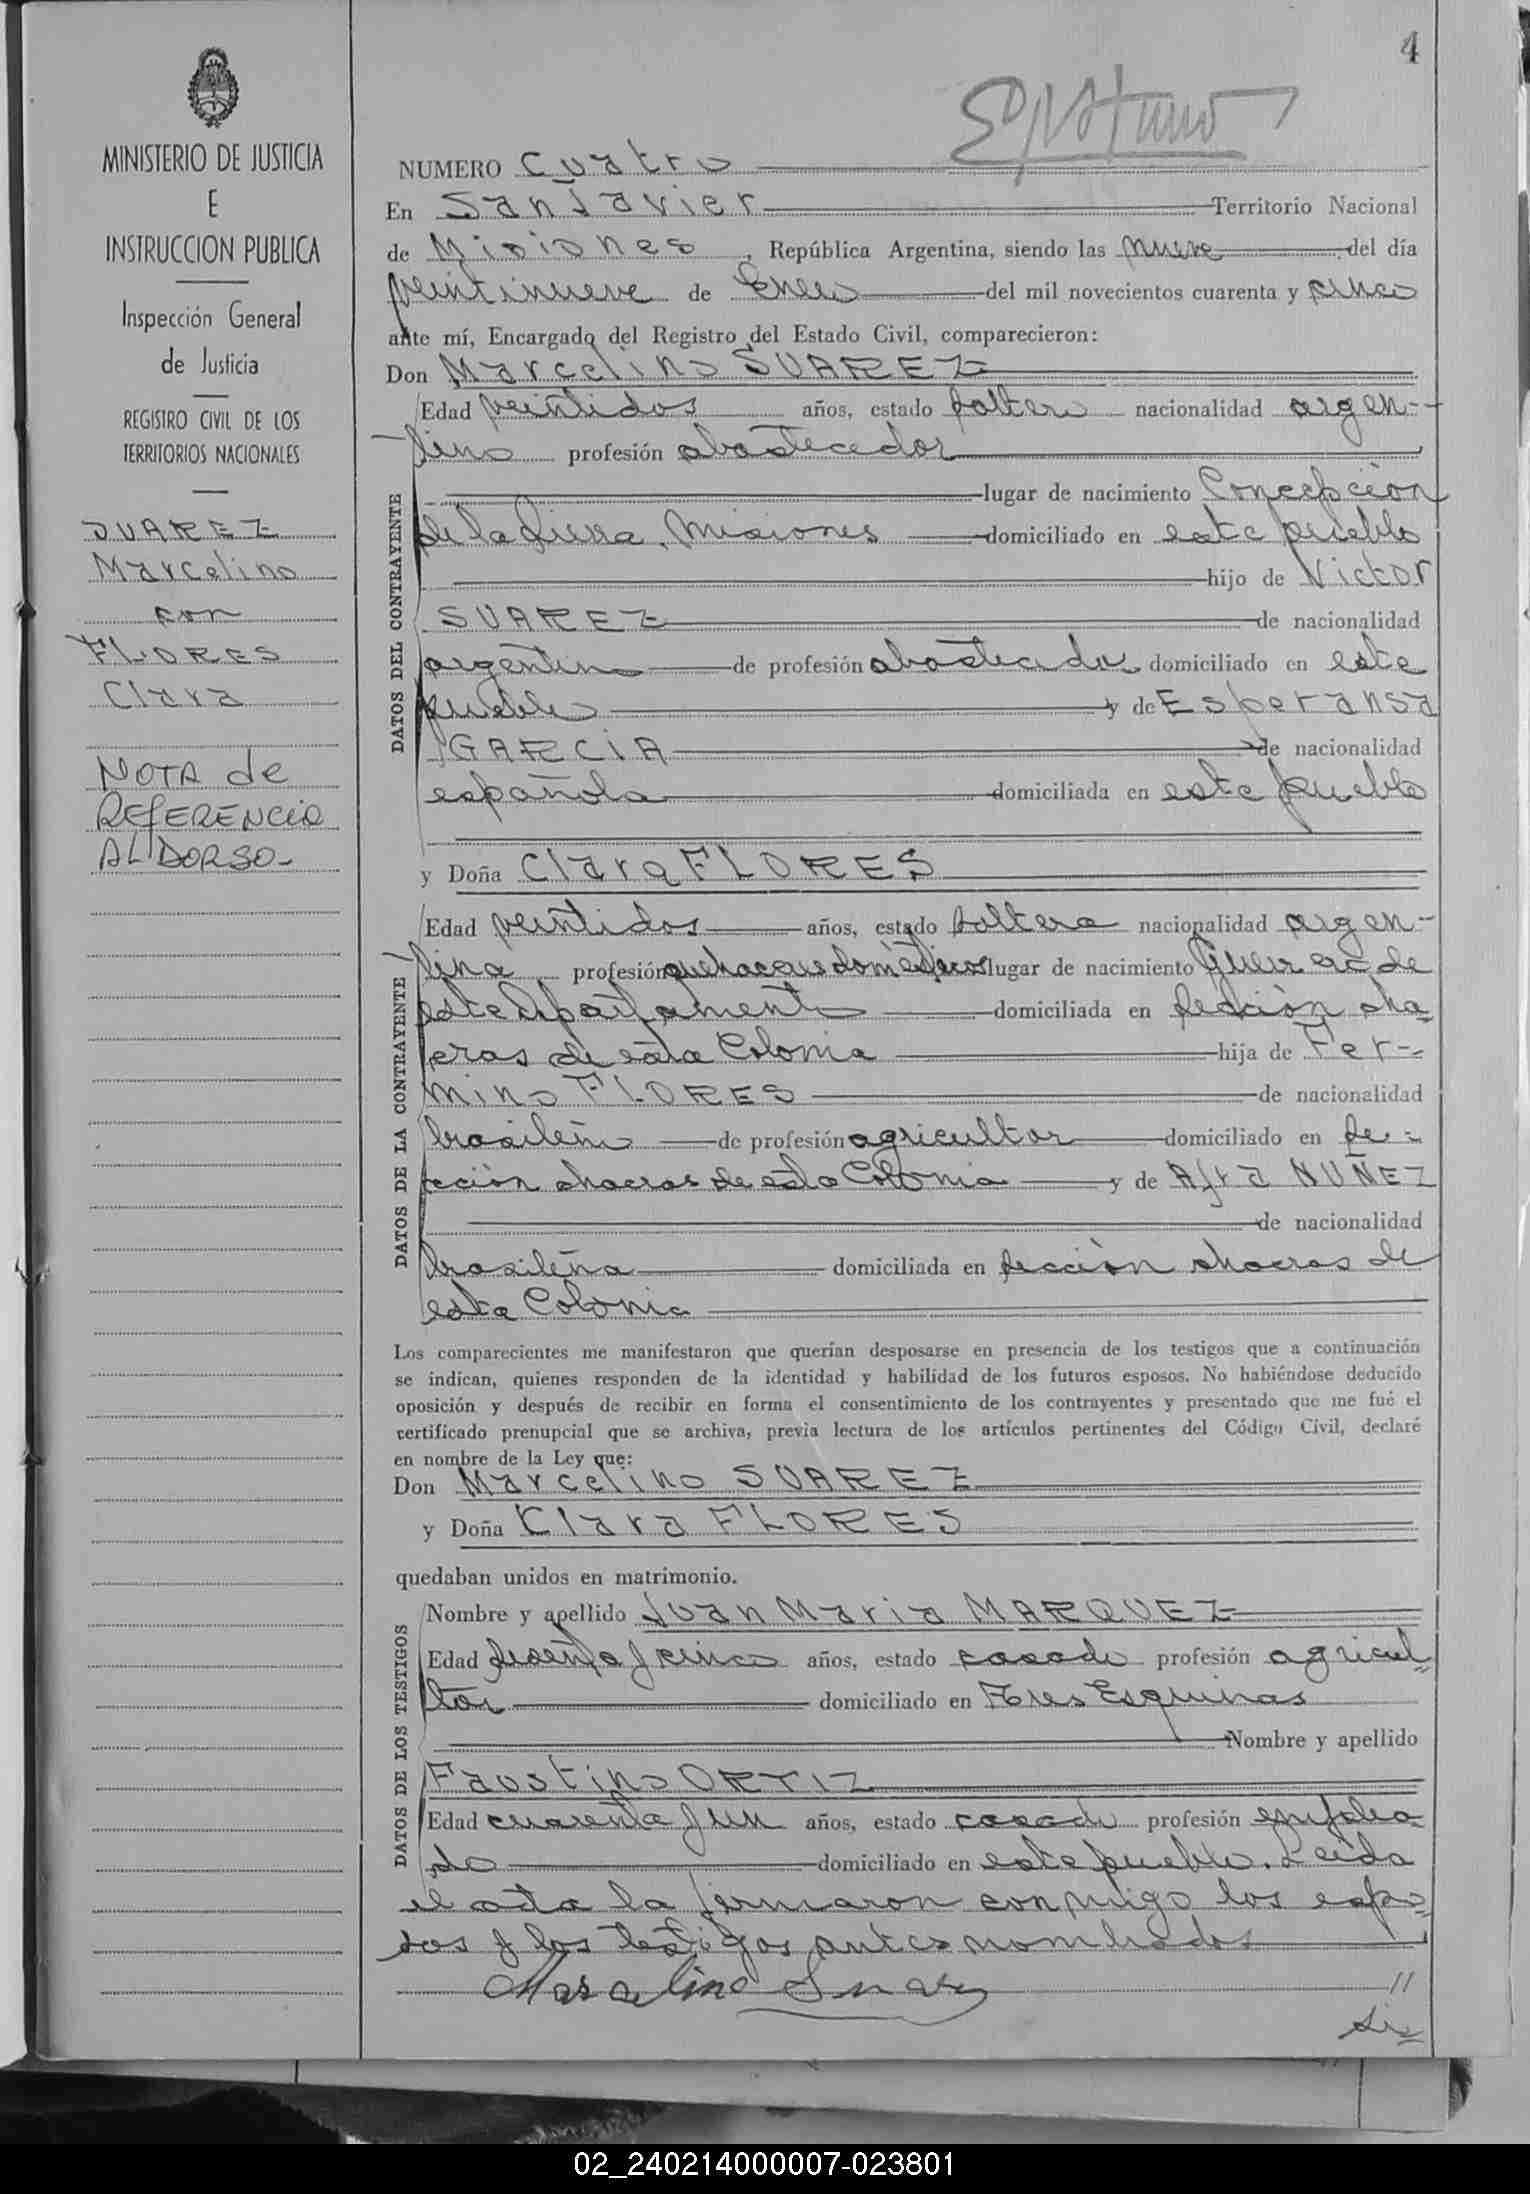 4
NUMERO Cuatro
En San Javier Territorio Nacional
de Misiones, República Argentina, siendo las nueve del día
veintinueve de Enero del mil novecientos cuarenta y cinco
ante mí, Encargado del Registro del Estado Civil, comparecieron:
Don Marcelino SUAREZ
DATOS DEL CONTRAYENTE
Edad veintidos años, estado soltero nacionalidad argen-
tino profesión abastecedor
lugar de nacimiento Concepción
de la Sierra, Misiones domiciliado en este pueblo
hijo de Victor
SUAREZ de nacionalidad
argentino de profesión abastecedor domiciliado en este
pueblo y de Esperansa
GARCIA de nacionalidad
española domiciliada en este pueblo
y Doña Clara FLORES
DATOS DE LA CONTRAYENTE
Edad veintidos años, estado soltera nacionalidad argen-
tina profesión quehaceres domésticos lugar de nacimiento de
este departamento domiciliada en sección cha-
cras de esta Colonia hija de Fer-
mino FLORES de nacionalidad
brasileño de profesión agricultor domiciliado en se-
cción chacras de esta Colonia y de NUÑEZ
de nacionalidad
brasileña domiciliada en sección chacras de
esta Colonia
Los comparecientes me manifestaron que querían desposarse en presencia de los testigos que a continuación
se indican, quienes responden de la identidad y habilidad de los futuros esposos. No habiéndose deducido
oposición y después de recibir en forma el consentimiento de los contrayentes y presentado que me fué el
certificado prenupcial que se archiva, previa lectura de los artículos pertinentes del Código Civil, declaré
en nombre de la Ley que:
Don Marcelino SUAREZ
y Doña Clara FLORES
quedaban unidos en matrimonio.
DATOS DE LOS TESTIGOS
Nombre y apellido Juan Maria MARQUEZ
Edad sesenta y cinco años, estado casado profesión agricul-
tor domiciliado en Tres Esquinas
Nombre y apellido
Faustino ORTIZ
Edad cuarenta y un años, estado casado profesión emplea-
do domiciliado en este pueblo. Leida
el acta la firmaron conmigo los espo-
sos y los testigos antes nombrados
Marcelino Suarez //
MINISTERIO DE JUSTICIA
E
INSTRUCCION PUBLICA
Inspección General
de Justicia
REGISTRO CIVIL DE LOS
TERRITORIOS NACIONALES
SUAREZ
Marcelino
con
FLORES
Clara
NOTA de
REFERENCIA
AL DORSO-
02_240214000007-023801